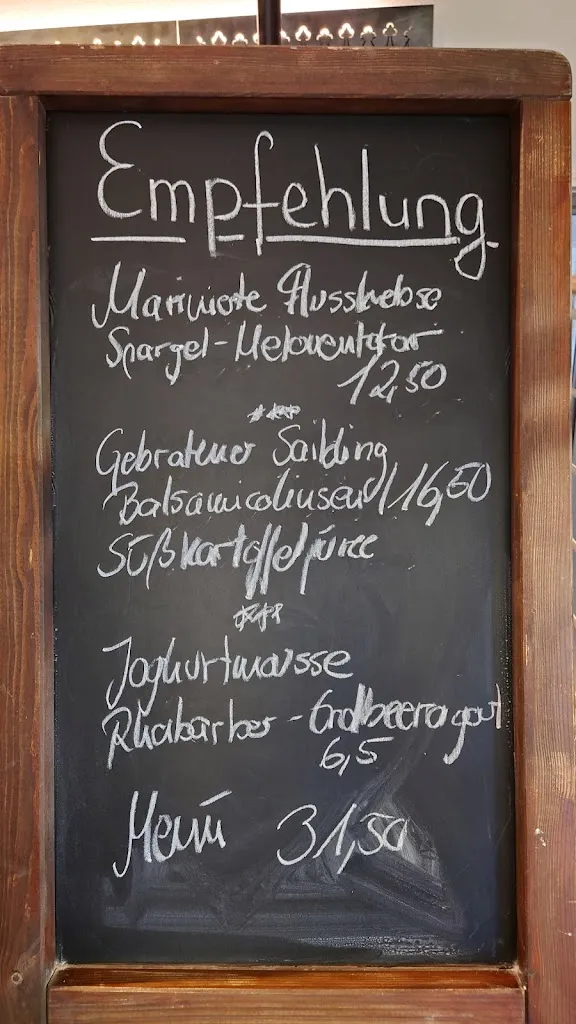 Empfehlung
Marinierte Flusskrebse
Spargel-Melonentatar
12,50
***
Gebratener Saibling
Balsamicolinsen / 16,50
Süßkartoffelpüree
***
Joghurtmousse
Rhabarber - Erdbeerragout
6,5
Menü 31,50